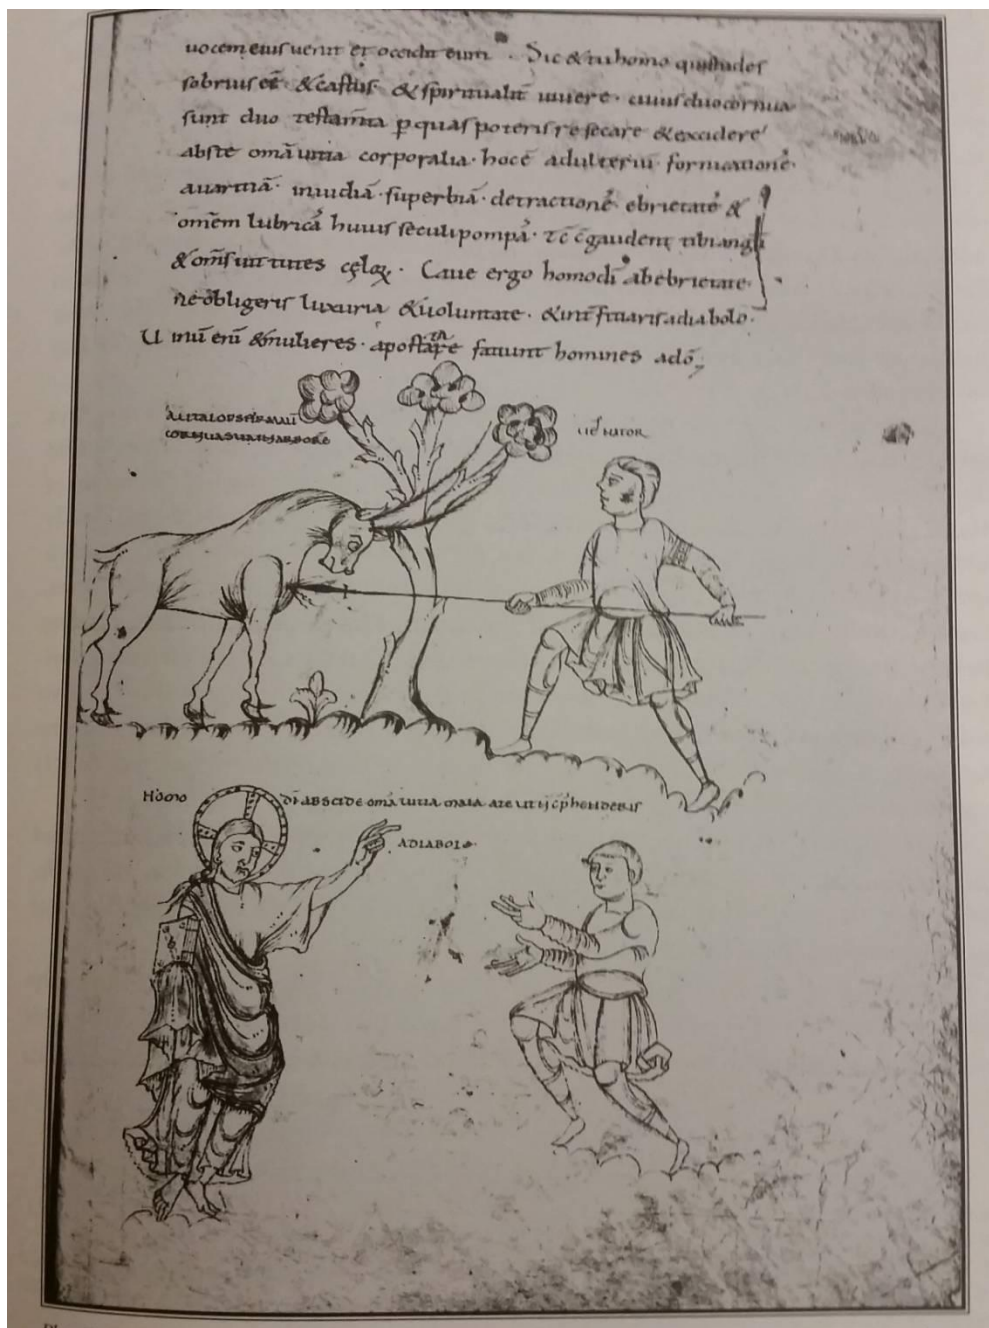 uocem eius uenit et occidit eum . Sic & tu homo qui studes
sobrius eē & castus & spiritualit uiuere . cuius duo cornua
sunt duo testam̄ta p quas poteris resecare & excidere
abs te om̄a uitia corporalia . hoc ē adulteriū fornicationē .
auaritiā . inuidiā . superbiā . detractionē ebrietatē &
om̄em lubricā huius seculi pompā . tc̄ c̄gaudent tibi angli
& om̄s uirtutes celoꝝ . Caue ergo homo di ab ebrietate .
ne obligeris luxuria & uoluntate . & int̄ficiaris a diabolo .
Uinū enī & mulieres . apostatare faciunt homines a dō
CORNUA SUA IN ARBORE
UENATOR
HOMO DI ABSCIDE omā uitia mala a te ut n cp̄henDeRis
A DIABOLO